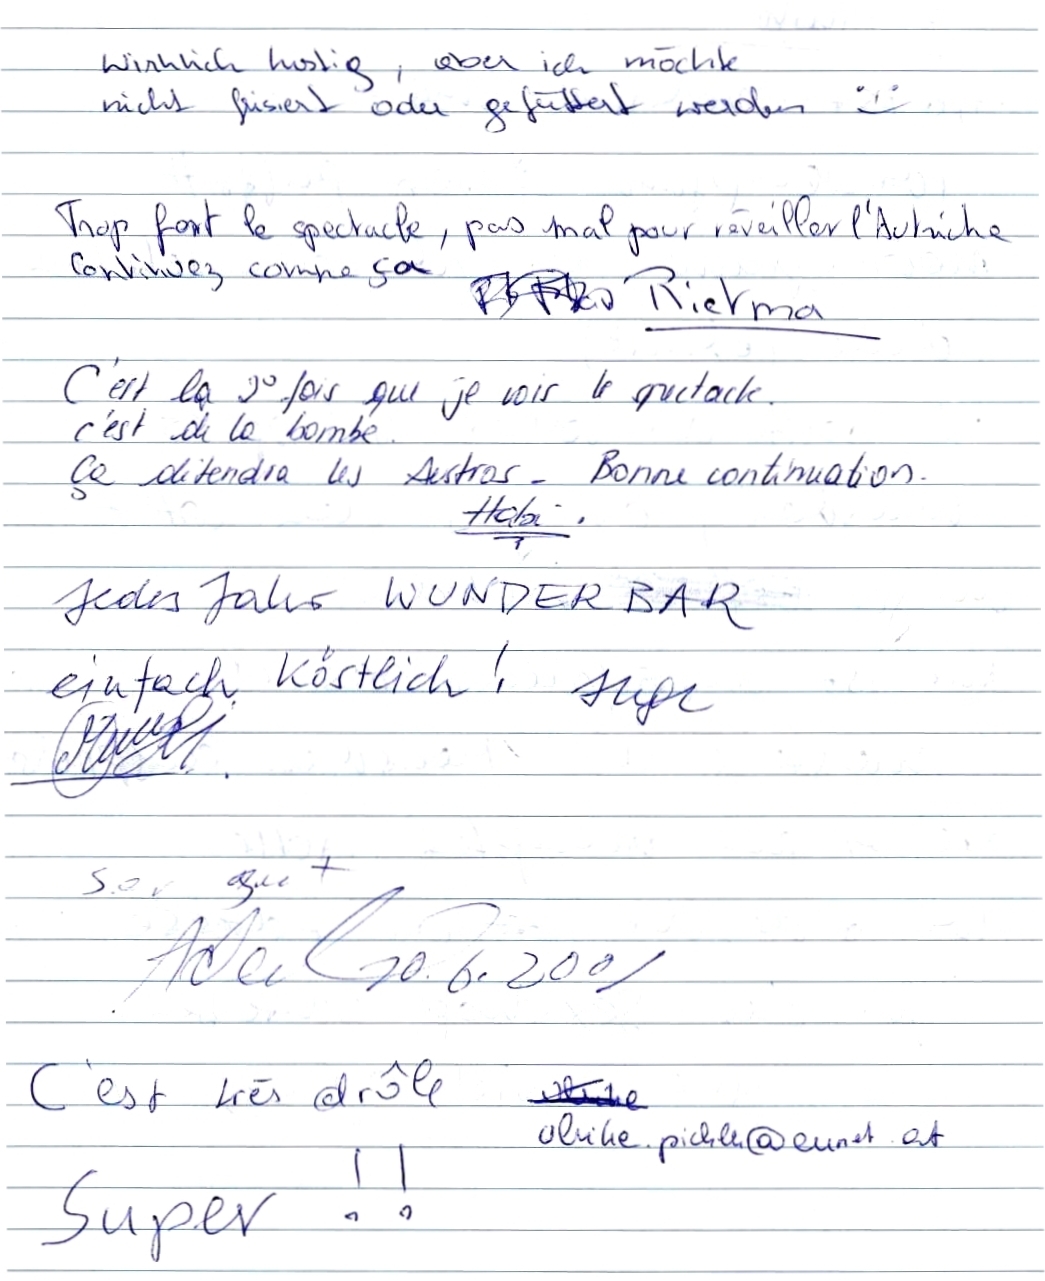 wirklich lustig, aber ich möchte
nicht frisiert oder gefüttert werden :-)
Trop fort le spectacle, pas mal pour réveiller l'Autriche
Continuez comme ça
Rietma
C'est la 2° fois que je vois le spectacle.
c'est de la bombe.
Ça détendra les Austros - Bonne continuation.
Jedes Jahr WUNDERBAR
einfach köstlich!
ser gut
10.6.2001
C'est très drôle
ulrike.pichler@eunet.at
Super !!